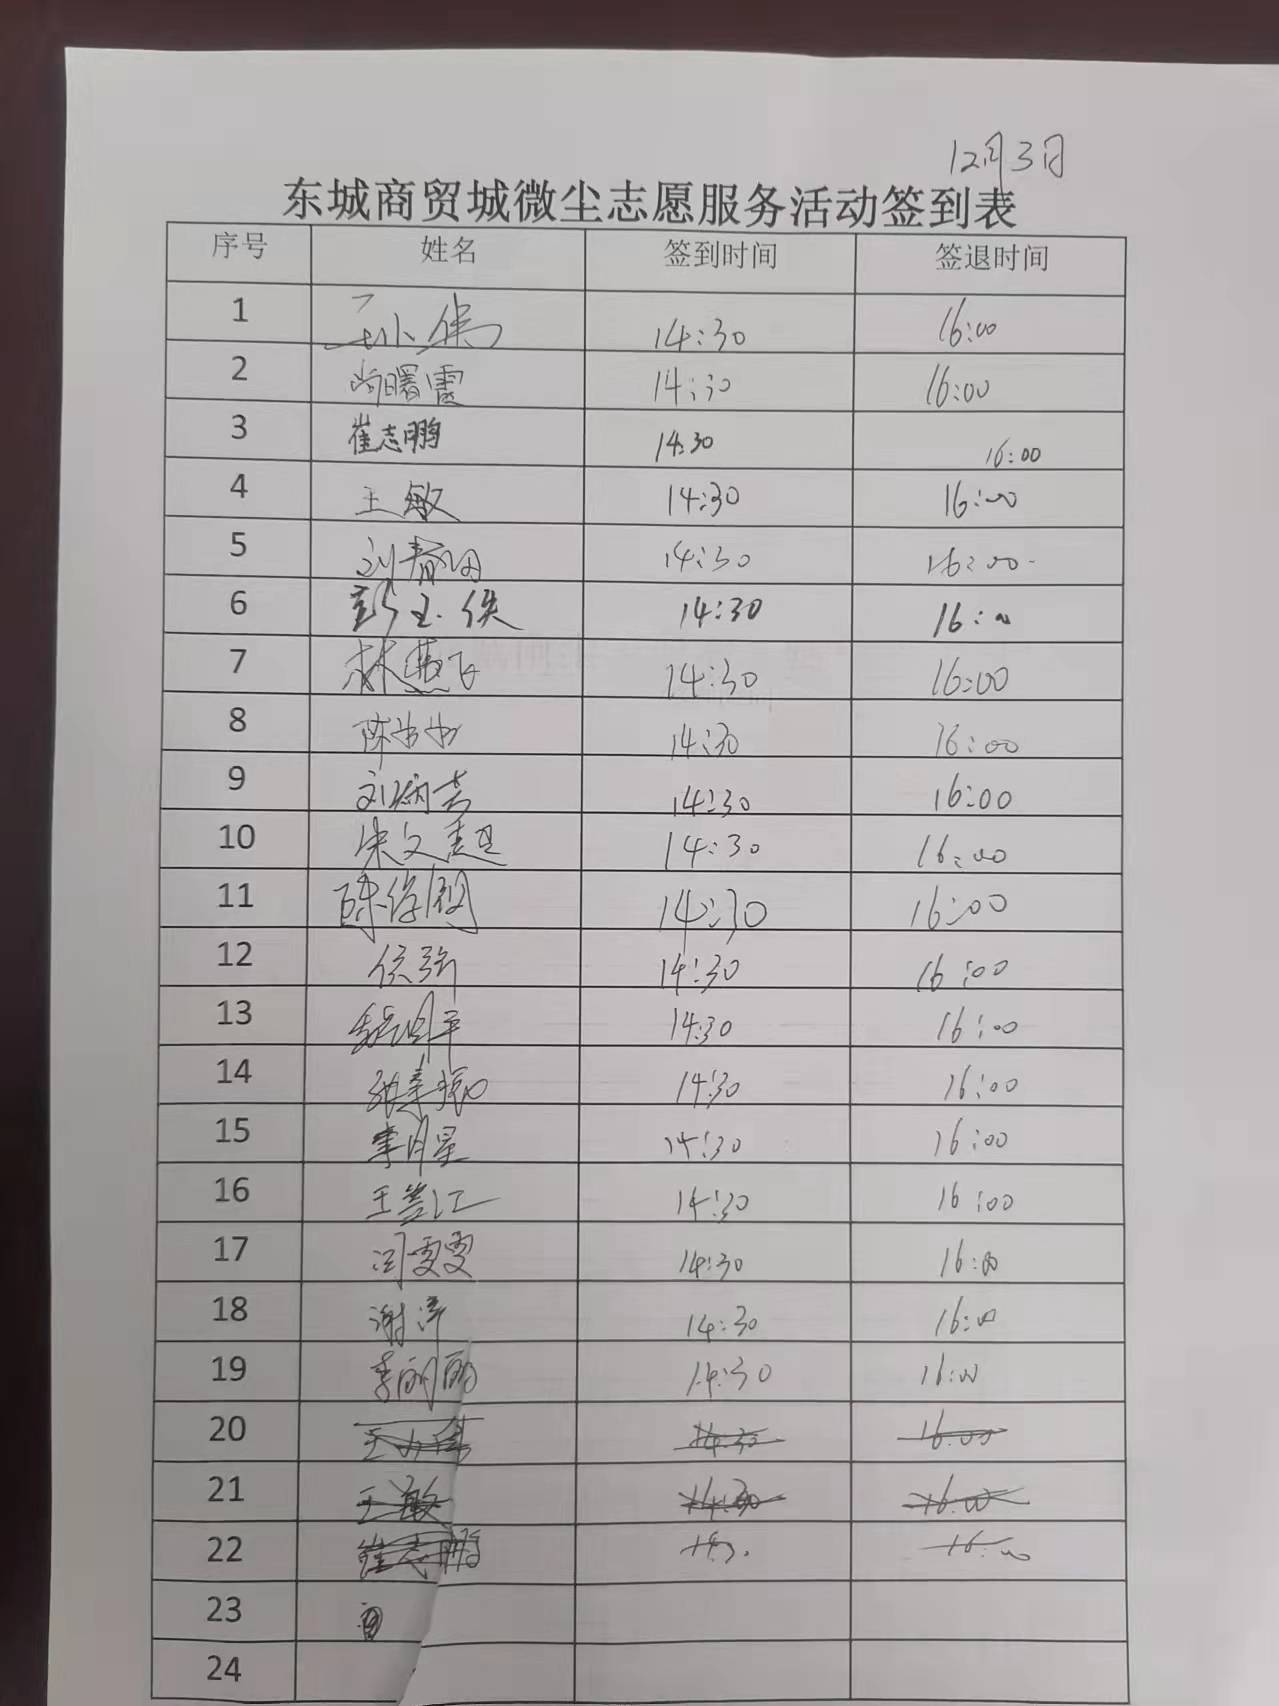 12月3日
东城商贸城微尘志愿服务活动签到表
序号 姓名 签到时间 签退时间
1 王小伟 14:30 16:00
2 尚曙霞 14:30 16:00
3 崔志鹏 14:30 16:00
4 王敏 14:30 16:00
5 刘青 14:30 16:00
6 彭玉侠 14:30 16:00
7 林燕飞 14:30 16:00
8 陈 14:30 16:00
9 刘炳芸 14:30 16:00
10 朱文超 14:30 16:00
11 陈 14:30 16:00
12 侯强 14:30 16:00
13 14:30 16:00
14 张 14:30 16:00
15 李月星 14:30 16:00
16 王 江 14:30 16:00
17 闫雯雯 14:30 16:00
18 谢萍 14:30 16:00
19 李丽丽 14:30 16:00
20 王小伟 14:30 16:00
21 王敏 14:30 16:00
22 崔志鹏 16:00
23
24